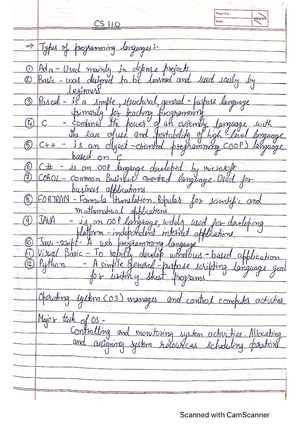 CS 110
Page No.
Date
→ Types of programming languages:-
① Ada - Used mainly in defense projects
② Basic - was designed to be learned and used easily by
beginners
③ Pascal - is a simple, structural, general-purpose language
primarily for teaching programming
④ C - combines the power of an assembly language with
the ease of use and portability of high-level language
⑤ C++ - is an object-oriented programming (OOP) language
based on C
⑥ C# - is an OOP language developed by microsoft
⑦ COBOL - common business oriented language. Used for
business applications
⑧ FORTRAN - Formula translation. Popular for scientific and
mathematical applications
⑨ JAVA - is an OOP language, widely used for developing
platform-independent internet applications
⑩ Java-script - A web programming language
⑪ Visual Basic - To rapidly develop windows-based application
⑫ Python - A simple general-purpose scripting language good
for writing short programs.
Operating system (OS) manages and control computer activities
Major task of OS -
Controlling and monitoring system activities. Allocating
and assigning system resources scheduling operations
Scanned with CamScanner